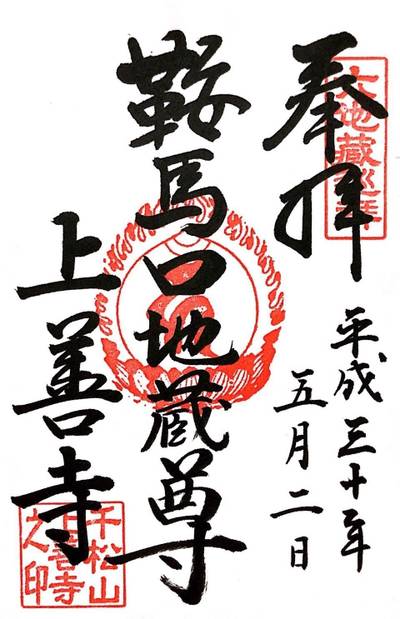 奉拝
六地蔵巡拝
平成三十年
五月二日
鞍馬口地蔵尊
上善寺
千松山
上善寺
之印